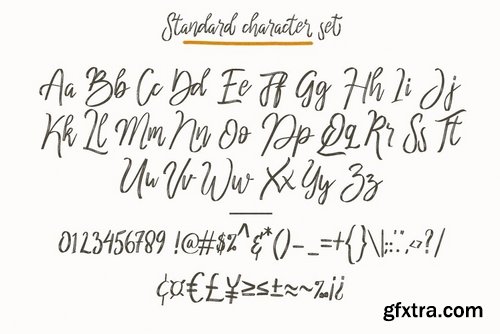 Standard character set
Aa Bb Cc Dd Ee Ff Gg Hh Ii Jj
Kk Ll Mm Nn Oo Pp Qq Rr Ss Tt
Uu Vv Ww Xx Yy Zz
0123456789 !@#$%^&*()-_=+{}\|;:'",.<>?/
¢¤€£¥≥≤±≈~‰¡¿
gfxtra.com